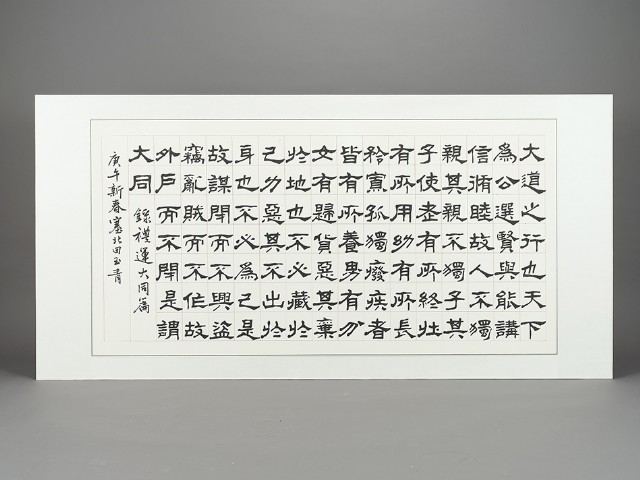 大道之行也天下
為公選賢與能講
信脩睦故人不獨
親其親不獨子其
子使老有所終壯
有所用幼有所長
矜寡孤獨廢疾者
皆有所養男有分
女有歸貨惡其棄
於地也不必藏於
己力惡其不出於
身也不必為己是
故謀閉而不興盜
竊亂賊而不作故
外戶而不閉是謂
大同
錄禮運大同篇
庚午新春塞北田玉青